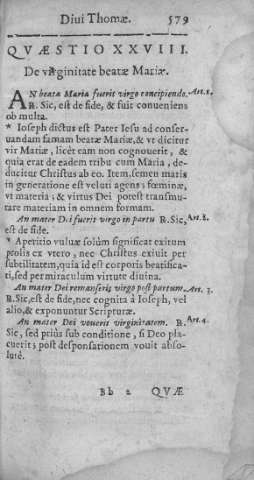 Diui Thomæ. 579
QVÆSTIO XXVIII.
De virginitate beatæ Mariæ.
AN beata Maria fuerit virgo concipiendo. Art. 1.
R. Sic, est de fide, & fuit conueniens
ob multa.
* Ioseph dictus est Pater Iesu ad conser-
uandam famam beatæ Mariæ, & vt dicitur
vir Mariæ, licèt eam non cognouerit, &
quia erat de eadem tribu cum Maria, de-
ducitur Christus ab eo. Item, semen maris
in generatione est veluti agens; fœminæ,
vt materia; & virtus Dei potest transmu-
tare materiam in omnem formam.
An mater Dei fuerit virgo in partu R. Sic, Art. 2.
est de fide.
* Apertio vuluæ solùm significat exitum
prolis ex vtero, nec Christus exiuit per
subtilitatem, quia id est corporis beatifica-
ti, sed per miraculum virtute diuina.
An mater Dei remanserit virgo post partum. Art. 3.
R. Sic, est de fide, nec cognita à Ioseph, vel
alio, & exponuntur Scripturæ.
An mater Dei vouerit virginitatem. R. Art. 4.
Sic, sed priùs sub conditione, si Deo pla-
cuerit; post desponsationem vouit abso-
lutè.
Bb 2 QVÆ